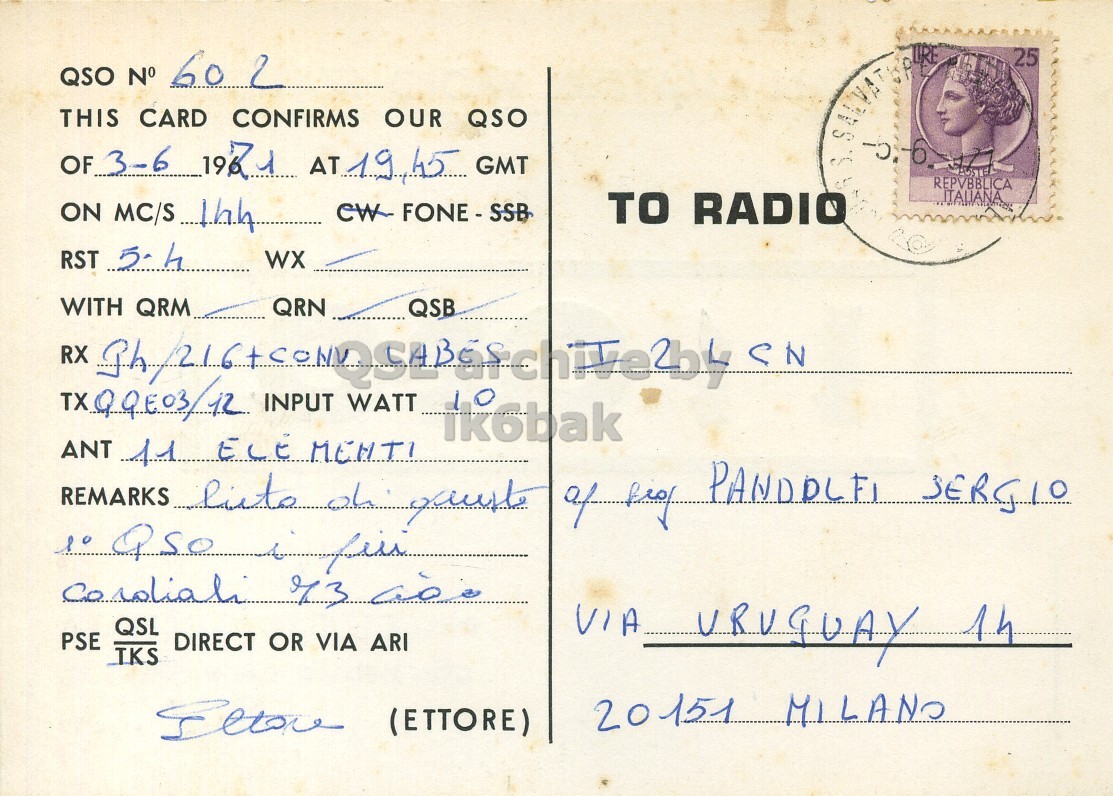 QSO Nº 602
THIS CARD CONFIRMS OUR QSO
OF 3-6 1971 AT 19,45 GMT
ON MC/S 144 CW - FONE - SSB
RST 5-4 WX
WITH QRM QRN QSB
RX G4/216+CONV. LABES
TX QQE03/12 INPUT WATT 10
ANT 11 ELEMENTI
REMARKS lieto di questo
1º QSO i più
cordiali 73 ciao
PSE QSL
TKS DIRECT OR VIA ARI
Ettore (ETTORE)
LIRE 25
POSTE
REPVBBLICA
ITALIANA
S. SALVATORE
5.-6.
TO RADIO
I2LCN
sig PANDOLFI SERGIO
VIA URUGUAY 14
20151 MILANO
QSL archive by
ik6bak